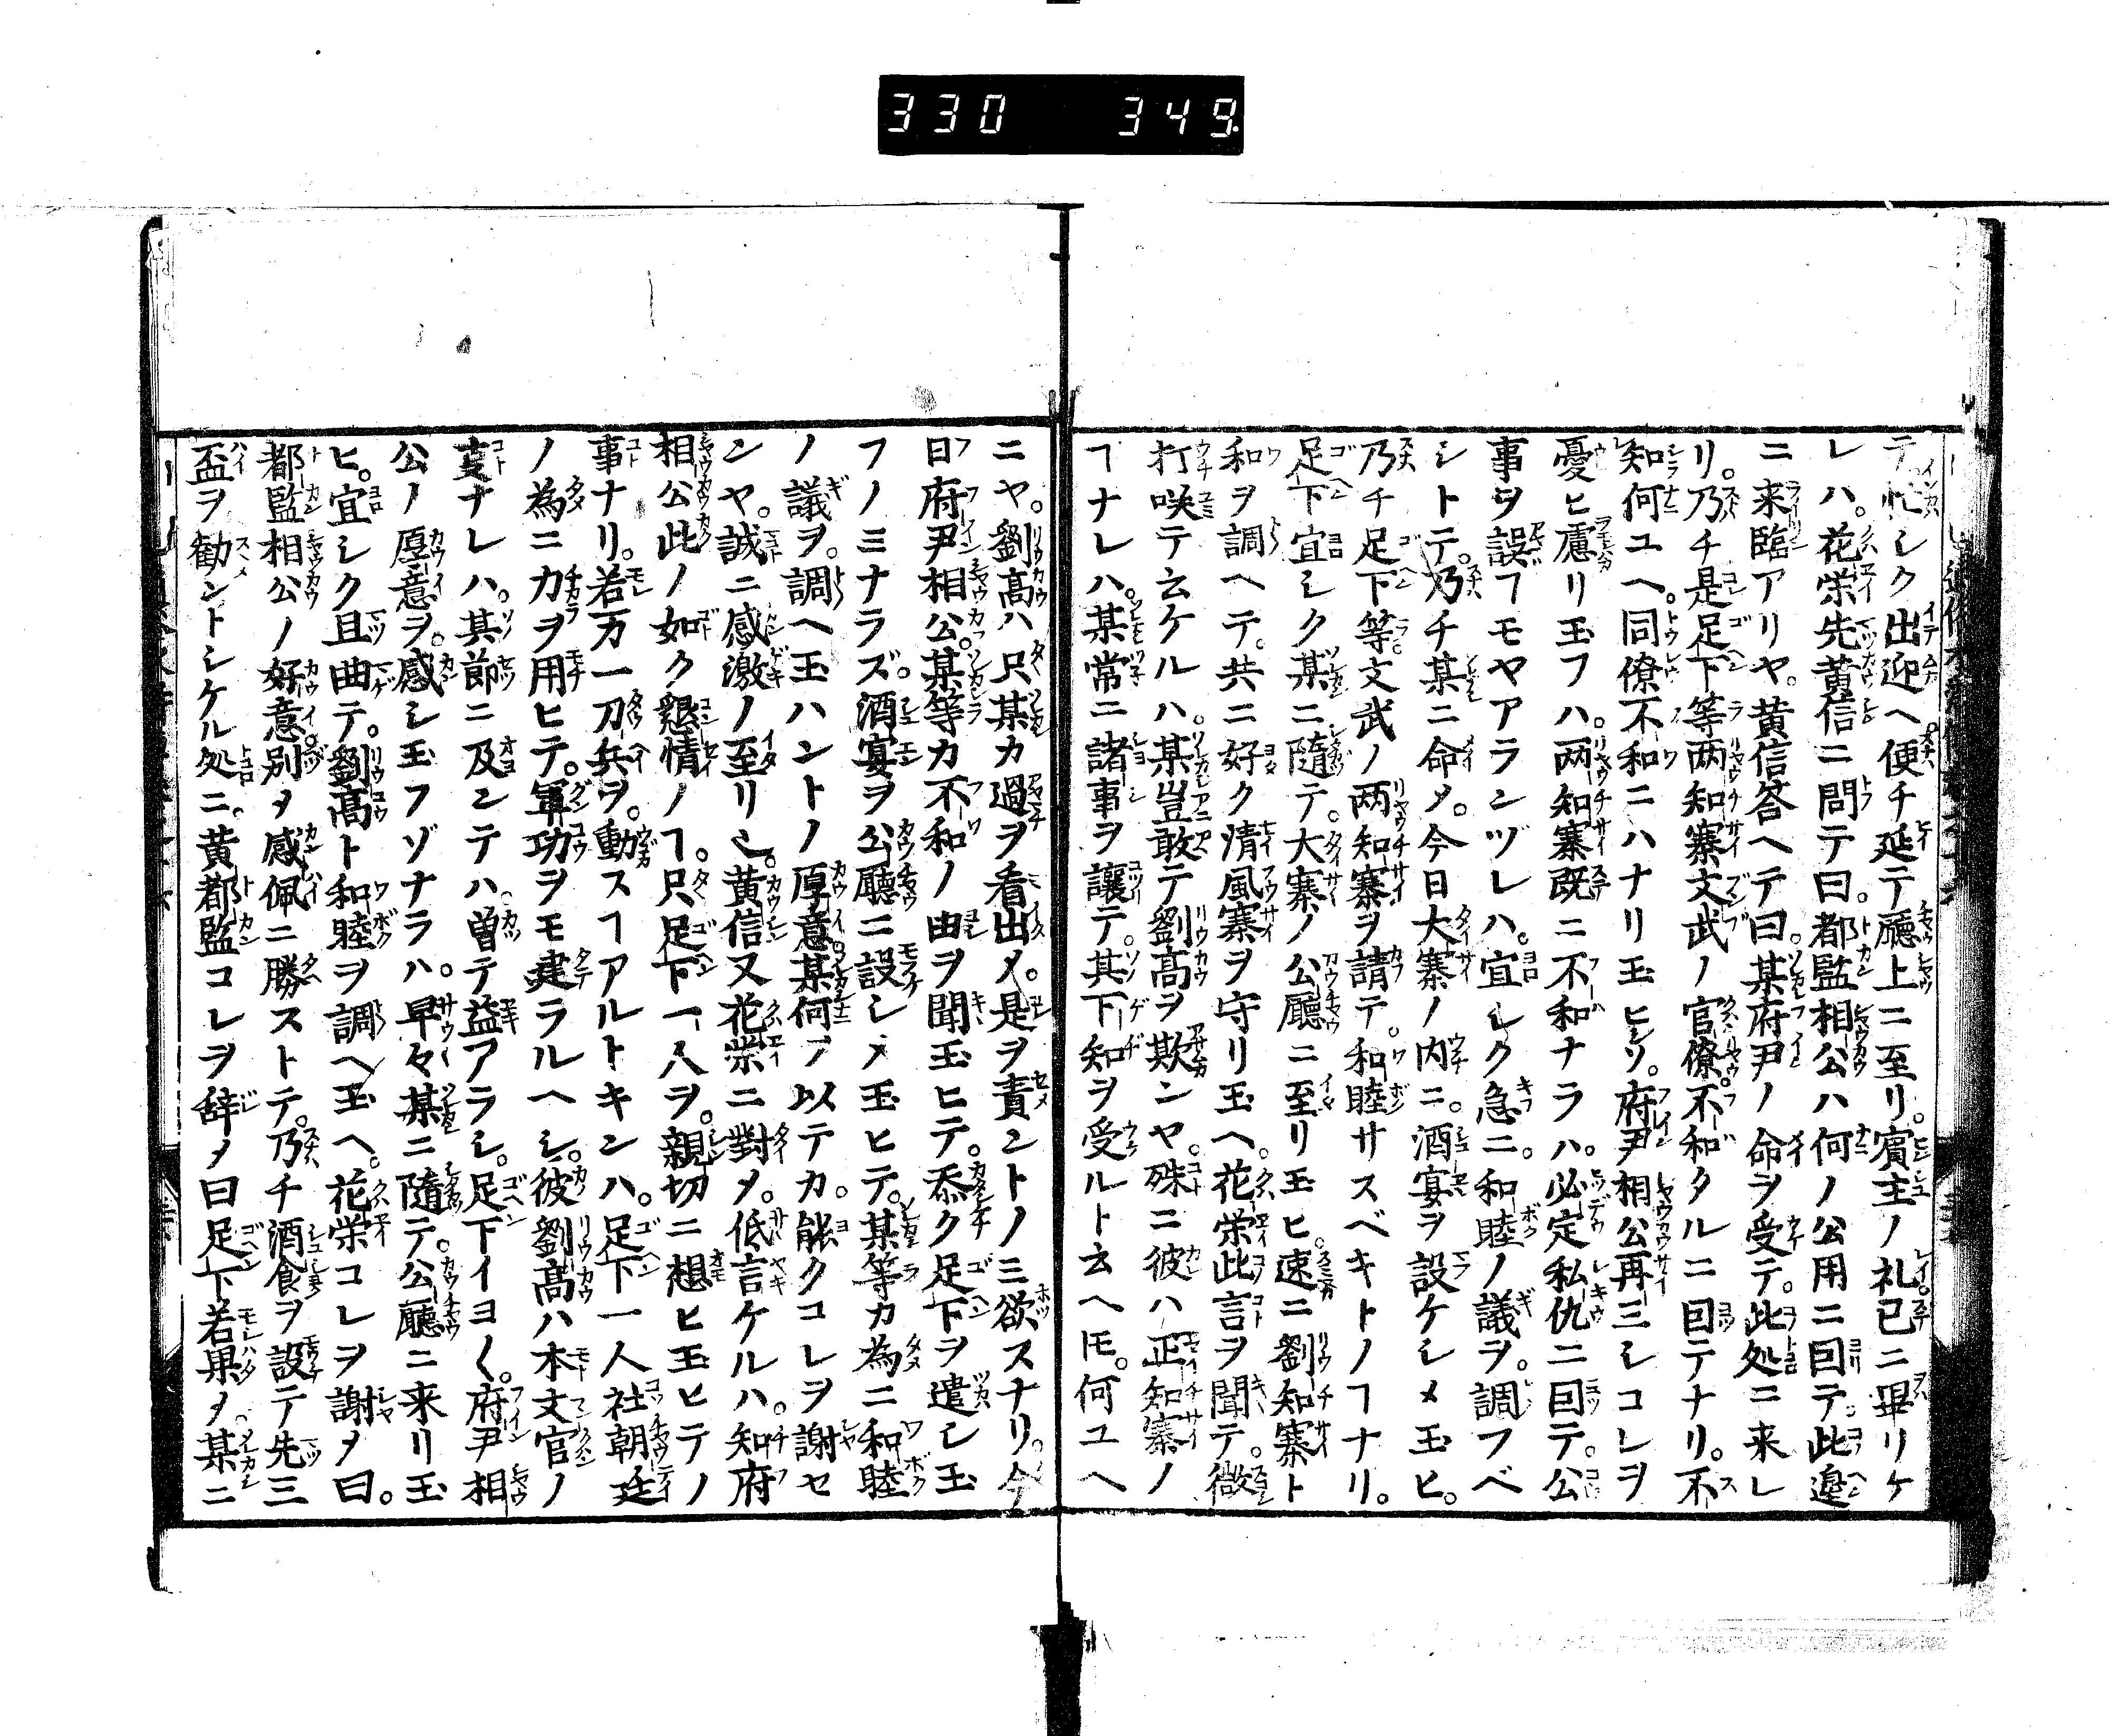 330 349.
テ忙シク出迎ヘ便チ延テ廳上ニ至リ。賓主ノ礼已ニ畢リケ
レハ。花栄先黄信ニ問テ曰。都監相公ハ何ノ公用ニ囙テ此邉
ニ来臨アリヤ。黄信答ヘテ曰。某府尹ノ命ヲ受テ。此処ニ来レ
リ。乃チ是足下等两知寨文武ノ官僚。不和タルニ囙テナリ。不
知何ユヘ。同僚不和ニハナリ玉ヒシソ。府尹相公再三シコレヲ
憂ヒ慮リ玉フハ。两知寨既ニ不和ナラハ。必定私仇ニ囙テ。公
事ヲ誤ヿモヤアランヅレハ。宜シク急ニ。和睦ノ議ヲ。調フベ
シトテ。乃チ某ニ命メ。今日大寨ノ内ニ。酒宴ヲ設ケシメ玉ヒ。
乃チ足下等文武ノ两知寨ヲ請テ。和睦サスベキトノヿナリ。
足下宜シク某ニ隨テ。大寨ノ公廳ニ至リ玉ヒ。速ニ劉知寨ト
和ヲ調ヘテ。共ニ好ク清風寨ヲ守リ玉ヘ。花栄此言ヲ聞テ。微
打咲テ云ケルハ。某豈敢テ劉髙ヲ欺ンヤ。殊ニ彼ハ正知寨ノ
ヿナレハ。某常ニ諸事ヲ讓テ。其下知ヲ受ルト云ヘ𪜈。何ユヘ
ニヤ。劉髙ハ只某カ過ヲ看出メ。是ヲ責ントノミ欲スナリ。今
日府尹相公。某等カ不和ノ由ヲ聞玉ヒテ。忝ク足下ヲ遣シ玉
フノミナラズ。酒宴ヲ公廳ニ設シメ玉ヒテ。某等カ為ニ和睦
ノ議ヲ。調ヘ玉ハントノ厚意。某何ヲ以テカ。能クコレヲ謝セ
ンヤ。誠ニ感激ノ至リ也。黄信又花栄ニ對メ。低言ケルハ。知府
相公此ノ如ク懇情ノヿ。只足下一人ヲ。親切ニ想ヒ玉ヒテノ
事ナリ。若万一刀兵ヲ。動スヿアルトキンハ。足下一人社朝廷
ノ為ニ力ヲ用ヒテ。軍功ヲモ建ラルヘシ。彼劉髙ハ本文官ノ
叓ナレハ。其節ニ及ンテハ。曽テ益アラシ。足下イヨ〱。府尹相
公ノ厚意ヲ。感シ玉フゾナラハ。早々某ニ隨テ。公廳ニ来リ玉
ヒ。宜シク且曲テ。劉髙ト和睦ヲ調ヘ玉ヘ。花栄コレヲ謝メ曰。
都監相公ノ好意。別メ感佩ニ勝ストテ。乃チ酒食ヲ設テ先三
盃ヲ勧ントシケル処ニ。黄都監コレヲ辞メ曰足下若果メ。某ニ